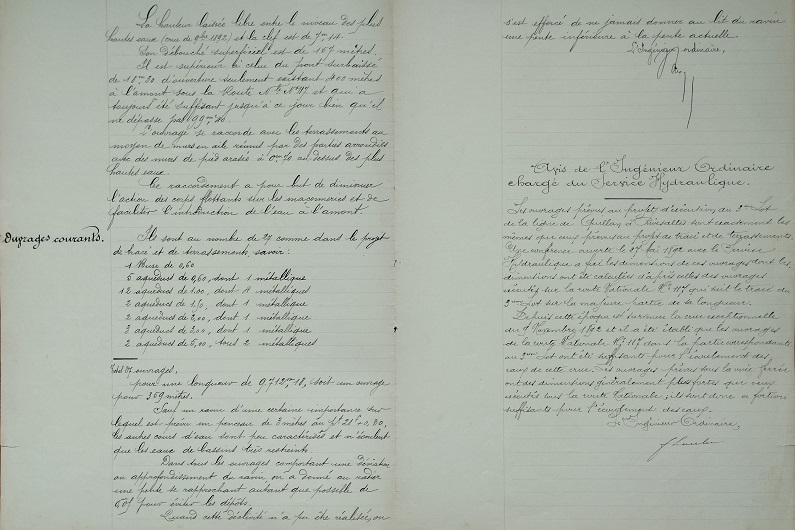 La hauteur laissée libre entre le niveau des plus
hautes eaux (crue de 1892) et la clef est de 7m14.
Son débouché superficiel est de 167 mètres.
Il est supérieur à celui du pont surbaissé
de 18m20 d'ouverture seulement existant 400 mètres
à l'amont sous la Route Nle N°117 et qui a
toujours été suffisant jusqu'à ce jour bien qu'il
ne dépasse pas 99m,80.
L'ouvrage se raccorde avec les terrassements au
moyen de murs en aile réunis par des parties arrondies
avec des murs de pied arasés à 0m70 au dessus des plus
hautes eaux.
Ce raccordement a pour but de diminuer
l'action des corps flottants sur les maçonneries et de
faciliter l'introduction de l'eau à l'amont.
Ouvrages courants.
Ils sont au nombre de 27 comme dans le projet
de tracé et de terrassements, savoir:
1 Buse de 0,60
5 aqueducs de 0,60, dont 1 métallique
12 aqueducs de 1.00, dont 4 métalliques
2 aqueducs de dont 1 métallique
2 aqueducs de dont 1 métallique
3 aqueducs de dont 1 métallique
2 aqueducs de 5,00, tous 2 métalliques
27 ouvrages,
pour une longueur de 9,712m,18, soit un ouvrage
pour 359 mètres.
Sauf un ravin d'une certaine importance sur
lequel est prévu un ponceau de 3 mètres au
les autres cours d'eau sont peu caractérisés et n'écoulent
que les eaux de bassins très restreints.
Dans tous les ouvrages comportant une déviation
ou approfondissement du ravin on a donné au radier
une pente se rapprochant autant que possible de
pour éviter les dépôts.
Quand cette déclivité n'a pu être réalisée, on
s'est efforcé de ne jamais donner au lit du ravin
une pente inférieure à la pente actuelle.
L'Ingénieur ordinaire,
Avis de l'Ingénieur Ordinaire
chargé du Service Hydraulique.
Les ouvrages prévus au projet d'exécution du 2me Lot
de la ligne de Quillan à Rivesaltes sont exactement les
mêmes que ceux prévus au projet de tracé et de terrassements.
Une conférence ouverte le 27 Mai 1892 avec le Service
Hydraulique a fixé les dimensions de ces ouvrages dont les
dimensions ont été calculées d'après celles des ouvrages
exécutés sur la route Nationale N° 117 qui suit le tracé du
2me Lot sur la majeure partie de sa longueur.
Depuis cette époque est survenue la crue exceptionnelle
du 9 Novembre 1892 et il a été établi que les ouvrages
de la route Nationale N° 117 dans la partie correspondante
au 2me Lot ont été suffisants pour l'écoulement des
eaux de cette crue. Les ouvrages prévus sous la voie ferrée
ont des dimensions généralement plus fortes que ceux
exécutés sous la route Nationale; ils sont donc
suffisants pour l'écoulement des eaux.
L'Ingénieur Ordinaire,